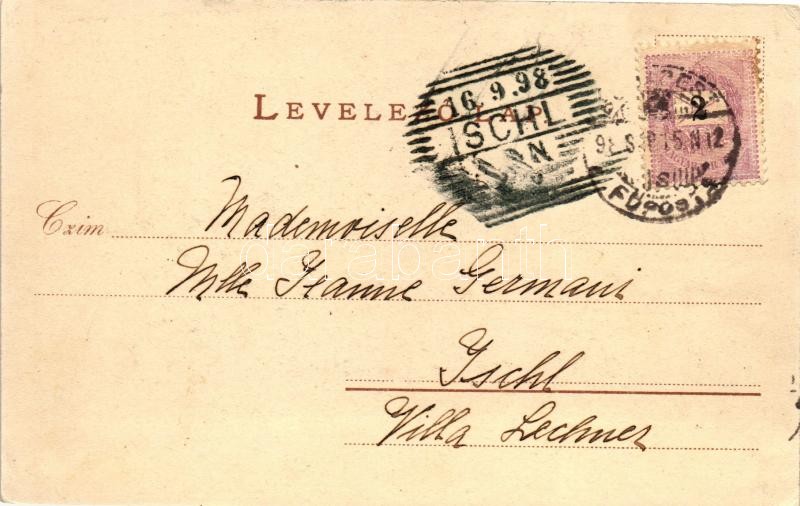 LEVELEZŐ LAP
16.9.98
ISCHL
2
FŐPOSTA
Czim
Mademoiselle
Mlle Jeanne Germani
Ischl
Villa Lechner
darabanth